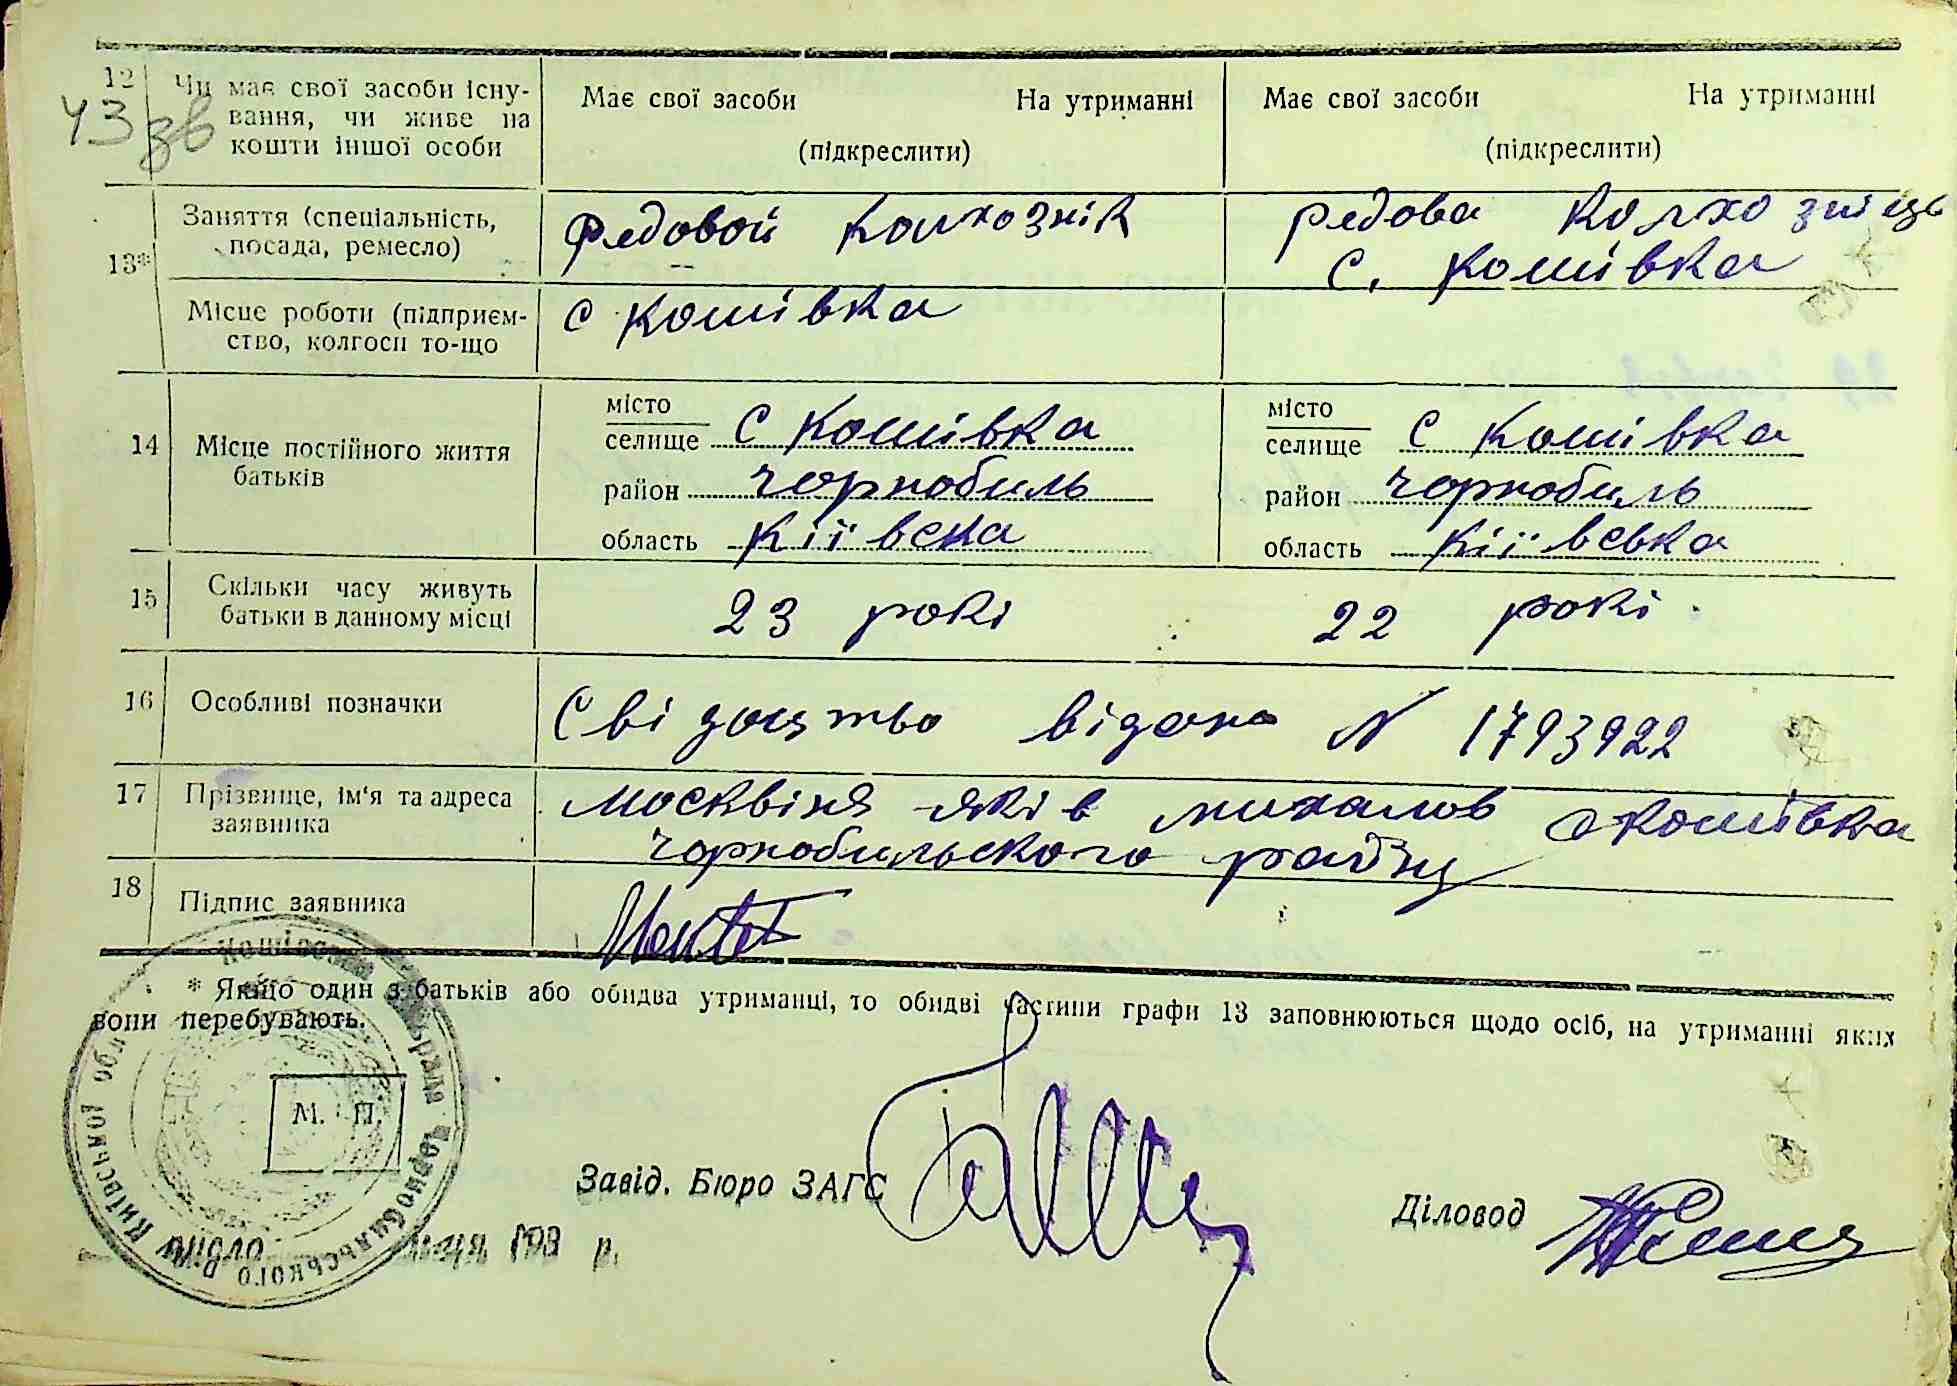 12
43 зв
Чи має свої засоби існу-
вання, чи живе на
кошти іншої особи
Має свої засоби На утриманні
(підкреслити)
Має свої засоби На утриманні
(підкреслити)
13*
Заняття (спеціальність,
посада, ремесло)
Рядовой колхознік
рядова колхозніць
с. Кошівка
Місце роботи (підприєм-
ство, колгосп то-що
с Кошівка
14
Місце постійного життя
батьків
місто
селище с Кошівка
район Чорнобиль
область Кіївска
місто
селище с Кошівка
район Чорнобиль
область Кіївська
15
Скільки часу живуть
батьки в данному місці
23 рокі
22 рокі
16
Особливі позначки
Свідоцтво відано N 1793922
17
Прізвище, ім'я та адреса
заявника
Москвіня Яків михалов с Кошівка
Чорнобильского району
18
Підпис заявника
* Якщо один з батьків або обидва утриманці, то обидві частини графи 13 заповнюються щодо осіб, на утриманні яких
вони перебувають.
М. П.
Завід. Бюро ЗАГС
Діловод
число 193 р.